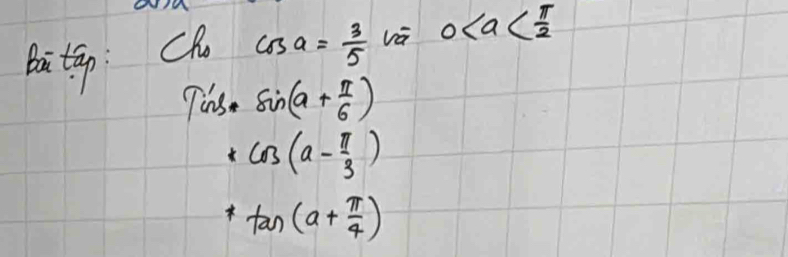 Bài tập: Cho cos a = 3/5 và 0 < a < π/2
Tính * sin(a + π/6)
* cos(a - π/3)
* tan(a + π/4)